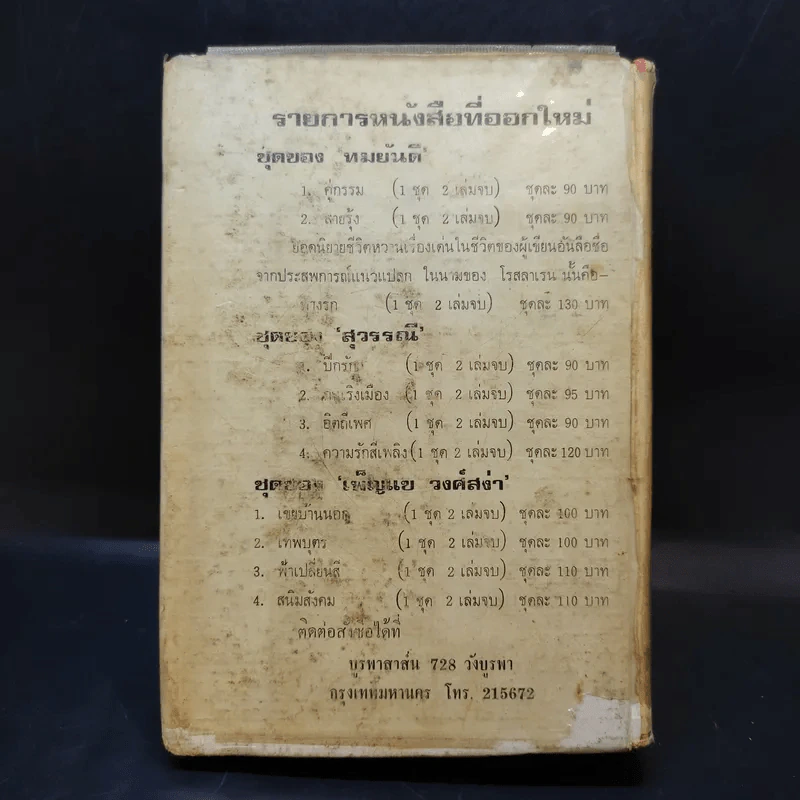 รายการหนังสือที่ออกใหม่
ชุดของ 'ทมยันตี'
1. คู่กรรม (1 ชุด 2 เล่มจบ) ชุดละ 90 บาท
2. สายรุ้ง (1 ชุด 2 เล่มจบ) ชุดละ 90 บาท
ยอดนิยายชีวิตหวานเรื่องเด่นในชีวิตของผู้เขียนอันลือชื่อ
จากประสพการณ์แนวแปลก ในนามของ โรสลาเรน นั้นคือ–
ทางรัก (1 ชุด 2 เล่มจบ) ชุดละ 130 บาท
ชุดของ 'สุวรรณี'
1. (1 ชุด 2 เล่มจบ) ชุดละ 90 บาท
2. (1 ชุด 2 เล่มจบ) ชุดละ 95 บาท
3. อิตถีเพศ (1 ชุด 2 เล่มจบ) ชุดละ 90 บาท
4. ความรักสีเพลิง (1 ชุด 2 เล่มจบ) ชุดละ 120 บาท
ชุดของ 'เพ็ญแข วงศ์สง่า'
1. เขยบ้านนอก (1 ชุด 2 เล่มจบ) ชุดละ 100 บาท
2. เทพบุตร (1 ชุด 2 เล่มจบ) ชุดละ 100 บาท
3. ฟ้าเปลี่ยนสี (1 ชุด 2 เล่มจบ) ชุดละ 110 บาท
4. สนิมสังคม (1 ชุด 2 เล่มจบ) ชุดละ 110 บาท
ติดต่อสั่งซื้อได้ที่
บูรพาสาส์น 728 วังบูรพา
กรุงเทพมหานคร โทร. 215672